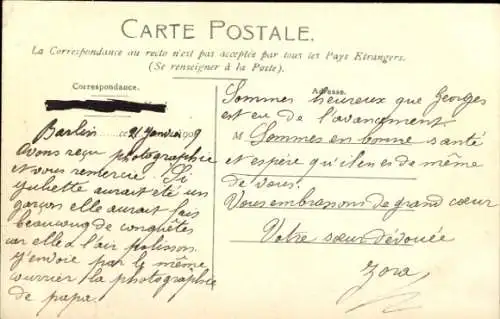 CARTE POSTALE.
La Correspondance au recto n'est pas acceptée par tous les Pays Etrangers.
(Se renseigner à la Poste).
Correspondance.
Barlin ce 21 Janvier 1909
Avons reçu photographie
et vous remercie. Si
Juliette aurait été un
garçon elle aurait fais
beaucoup de conquêtes
car elle a l'air polisson.
J'envoie par le même
courrier la photographie
de papa.
Adresse.
Sommes heureux que Georges
est eu de l'avancement.
M Sommes en bonne santé
et espère qu'il en es de même
de vous.
Vous embrassons de grand cœur
Votre sœur dévouée
Zora